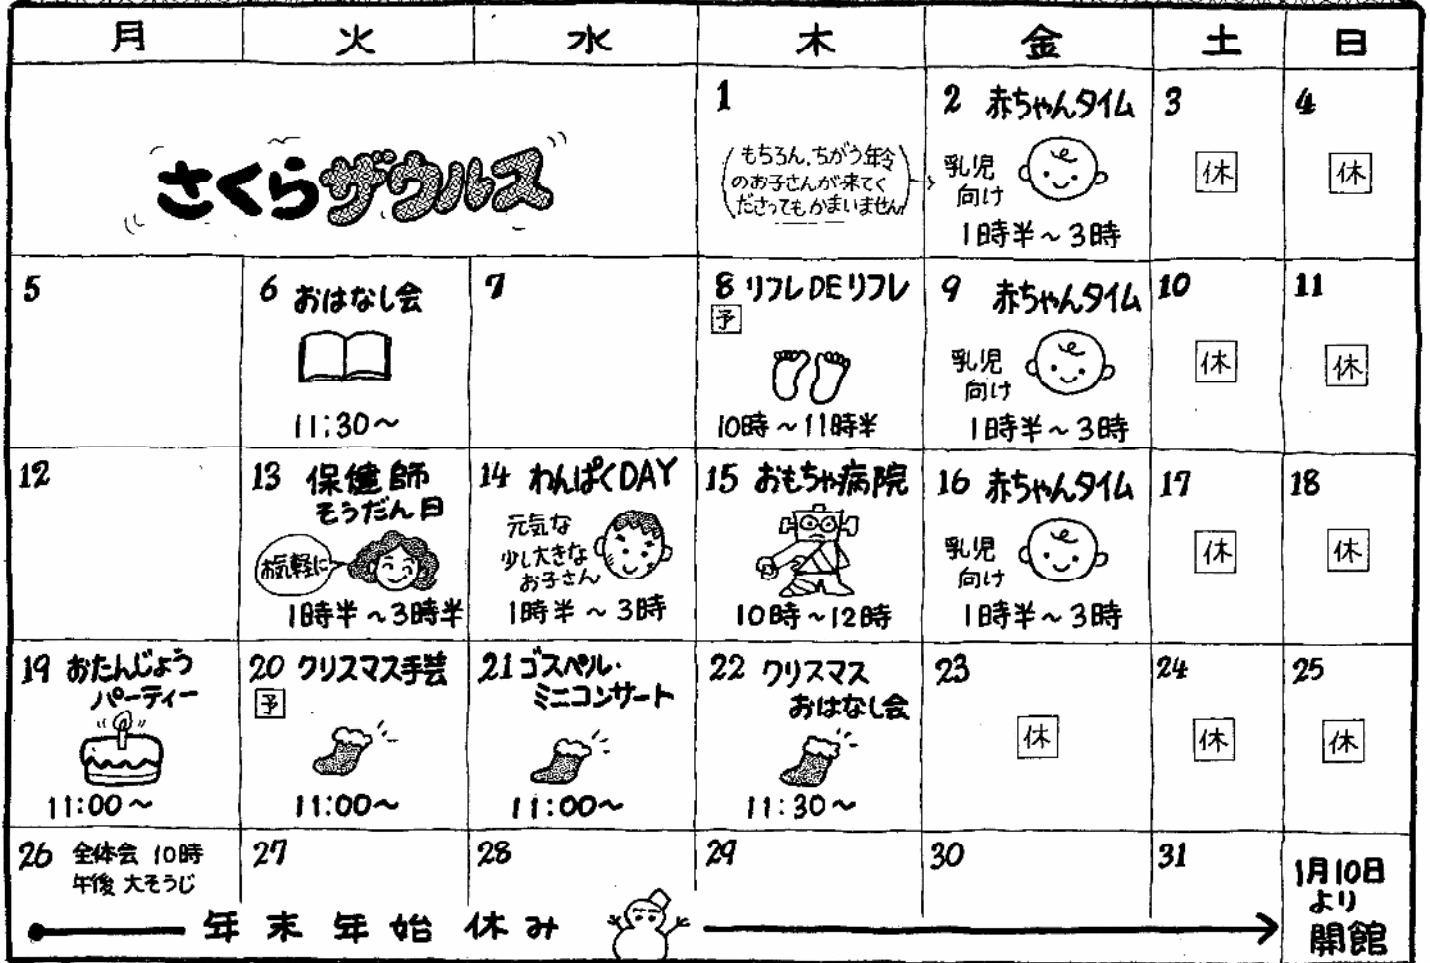 月 火 水 木 金 土 日
さくらザウルス
1
(もちろん、ちがう年令
のお子さんが来てく
ださってもかまいません)
2 赤ちゃんタイム
乳児
向け
1時半～3時
3
休
4
休
5
6 おはなし会
11:30～
7
8 リフレDEリフレ
予
10時～11時半
9 赤ちゃんタイム
乳児
向け
1時半～3時
10
休
11
休
12
13 保健師
そうだん日
お気軽に
1時半～3時半
14 わんぱくDAY
元気な
少し大きな
お子さん
1時半～3時
15 おもちゃ病院
10時～12時
16 赤ちゃんタイム
乳児
向け
1時半～3時
17
休
18
休
19 おたんじょう
パーティー
11:00～
20 クリスマス手芸
予
11:00～
21 ゴスペル・
ミニコンサート
11:00～
22 クリスマス
おはなし会
11:30～
23
休
24
休
25
休
26 全体会 10時
午後 大そうじ
27
28
29
30
31
年末年始休み
1月10日
より
開館